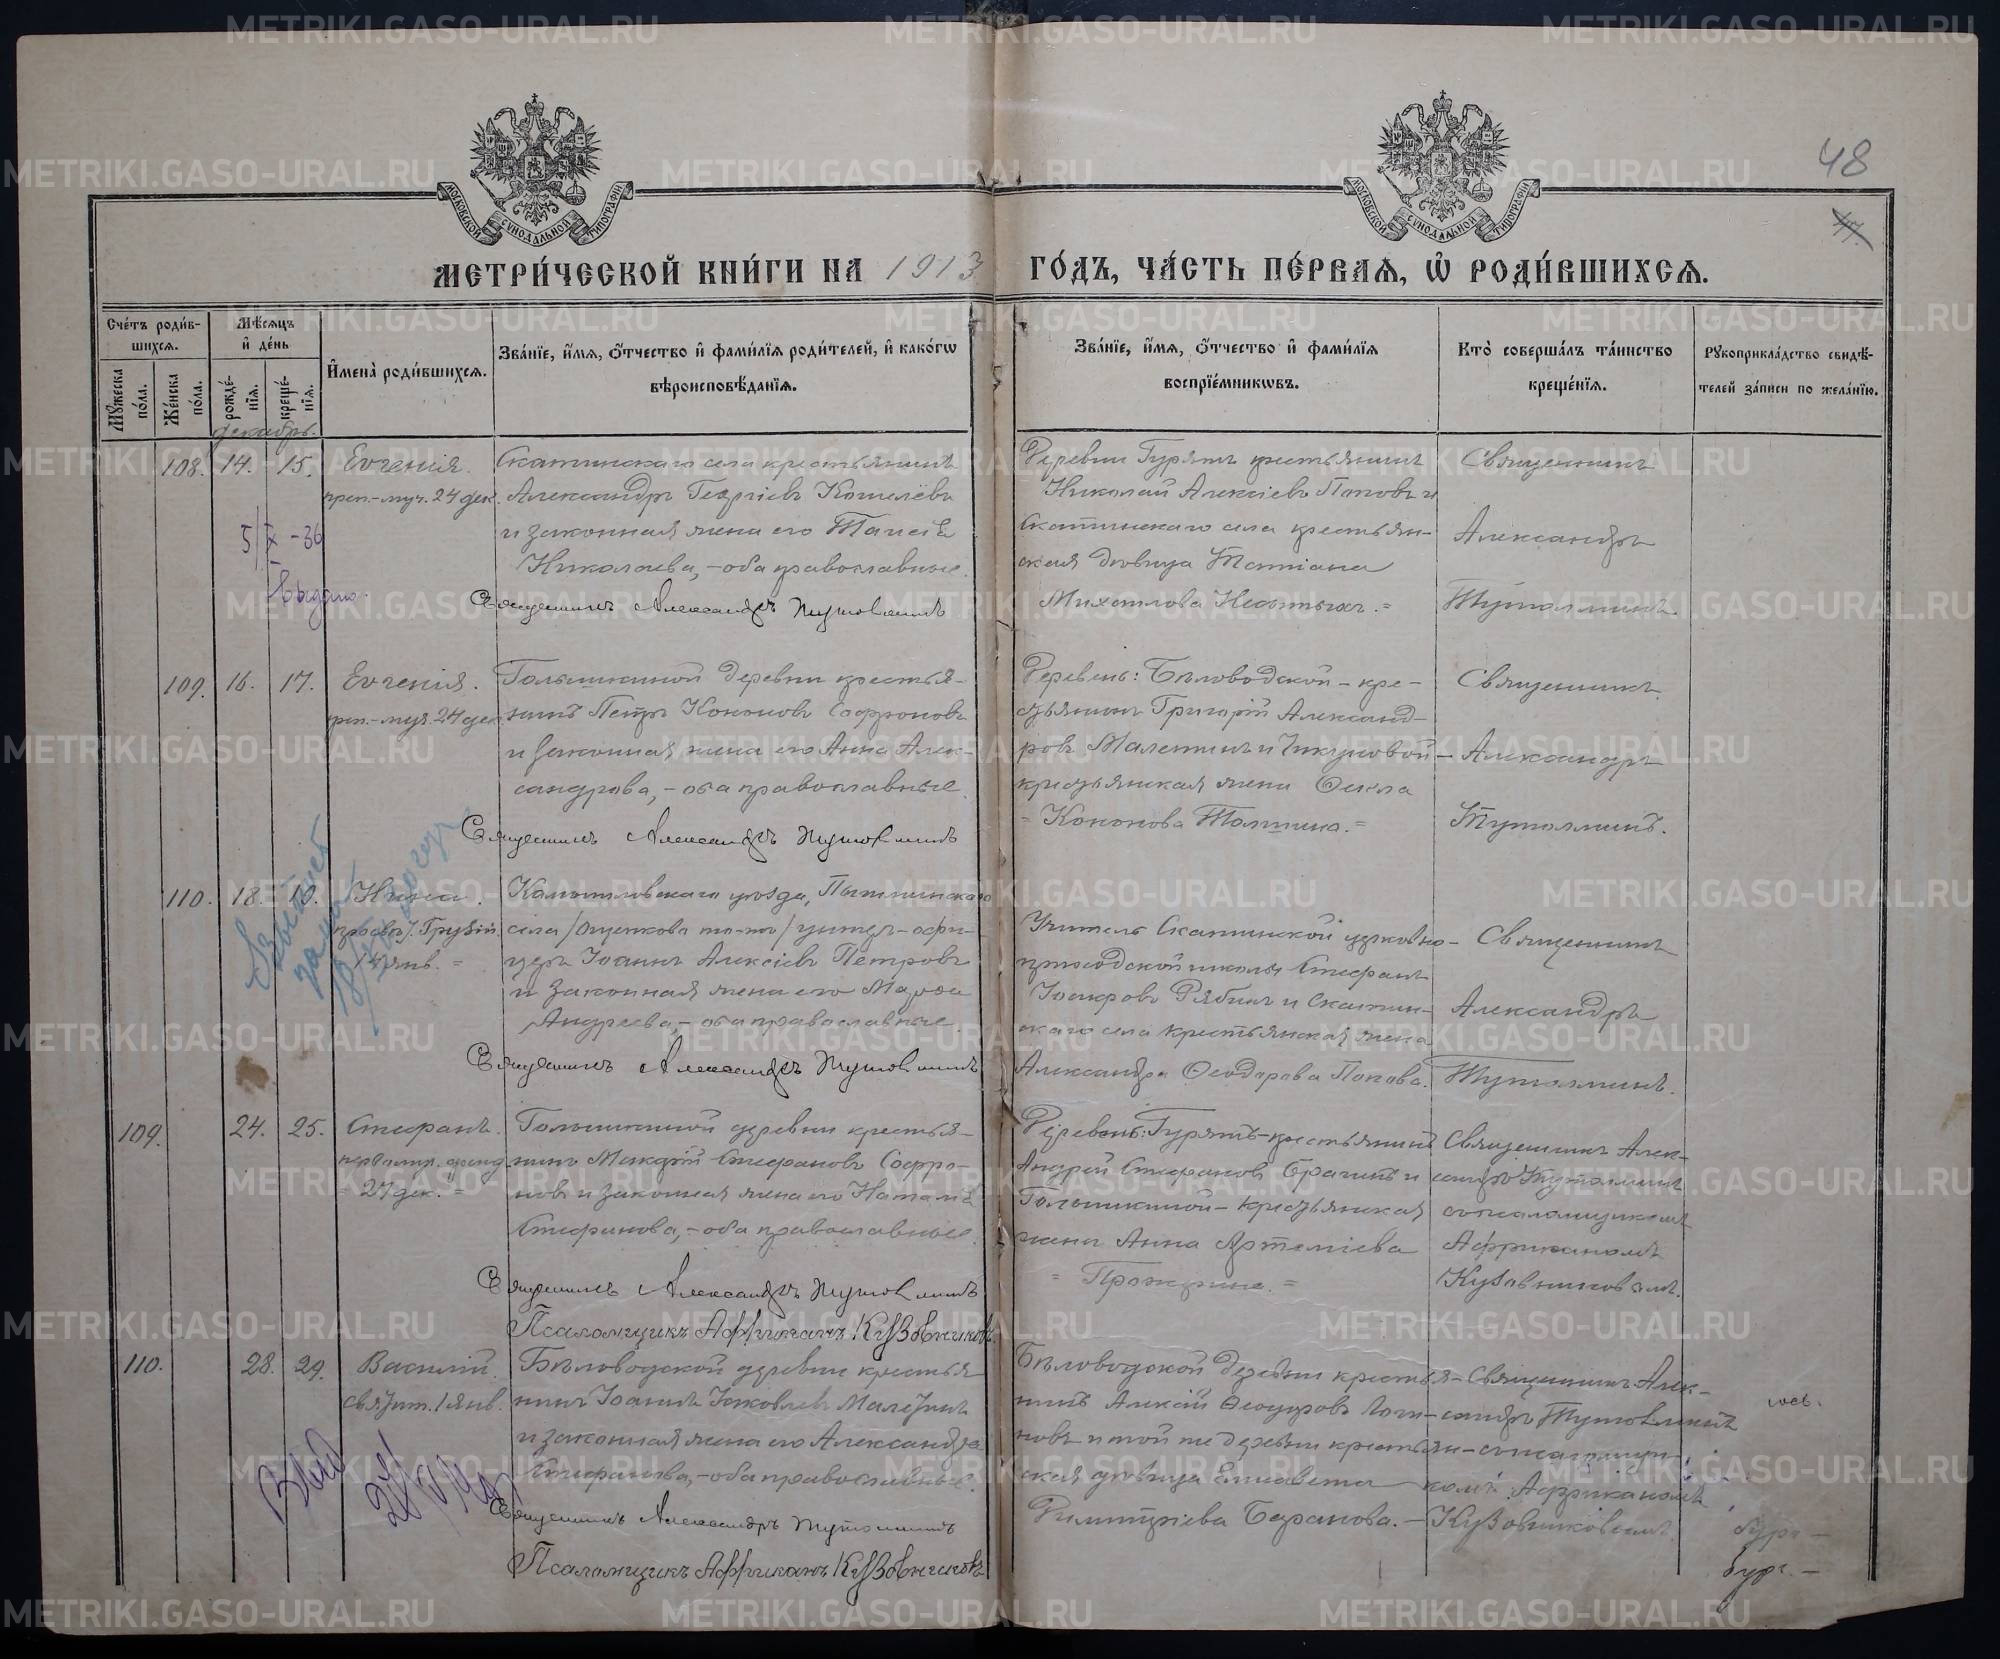 48
МОСКОВСКОЙ СѴНОДАЛЬНОЙ ТИПОГРАФІИ
МОСКОВСКОЙ СѴНОДАЛЬНОЙ ТИПОГРАФІИ
МЕТРИ́ЧЕСКОЙ КНИ́ГИ НА 1913 ГО́ДЪ, ЧА́СТЬ ПЕ́РВАѦ, Ѡ҆ РОДИ́ВШИХСѦ.
Сче́тъ роди́в-
шихсѧ.
Мѣ́сѧцъ
и҆ де́нь
И҆мена̀ роди́вшихсѧ.
Зва́нїе, и҆́мѧ, ѻ҆́тчество и҆ фами́лїѧ роди́телей, и҆ како́гѡ
вѣроисповѣ́данїѧ.
Зва́нїе, и҆́мѧ, ѻ҆́тчество и҆ фами́лїѧ
воспрїе́мникѡвъ.
Кто̀ соверша́лъ та́инство
креще́нїѧ.
Рꙋкоприкла́дство свидѣ́-
телей за́писи по жела́нїю.
Мꙋ́жеска
по́ла.
Же́нска
по́ла.
рожде́-
нїѧ.
креще́-
нїѧ.
декабрь.
108. 14. 15. Евгенія.
преп.-муч. 24 дек.
Скатинскаго села крестьянинъ
Александръ Георгіевъ Кошелёвъ
и законная жена его Таисія
Николаева, - оба православные.
Священникъ Александръ Тутолминъ
Деревни Гурятъ крестьянинъ
Николай Алексіевъ Поповъ и
Скатинскаго села крестьян-
ская дѣвица Татіана
Михаилова =
Священникъ
Александръ
Тутолминъ.
5/X -36
выдано.
109. 16. 17. Евгенія.
преп.-муч. 24 дек.
Голышкиной деревни крестья-
нинъ Петръ Кононовъ Софроновъ
и законная жена его Анна Алек-
сандрова, - оба православные.
Священникъ Александръ Тутолминъ
Деревень: Бѣловодской - кре-
стьянинъ Григорій Александ-
ровъ Малетинъ и Чикуновой -
крестьянская жена Ѳекла
= Кононова =
Священникъ
Александръ
Тутолминъ.
110. 18. 19. Нина.
просвѣт. Грузіи
14 янв. =
Камышловскаго уѣзда, Пышминскаго
села / унтер-офи-
церъ Іоаннъ Алексіевъ Петровъ
и законная жена его Марѳа
Андреева, - оба православные.
Священникъ Александръ Тутолминъ
Учитель Скатинской церковно-
приходской школы Стефанъ
Рябинъ и Скатин-
скаго села крестьянская жена
Александра Ѳеодорова Попова.
Священникъ
Александръ
Тутолминъ.
109. 24. 25. Стефанъ.
27 дек. =
Голышкиной деревни крестья-
нинъ Стефановъ Софро-
новъ и законная жена его Наталія
Стефанова, - оба православные.
Священникъ Александръ Тутолминъ
Псаломщикъ Африканъ Кузовниковъ
Деревень: Гурятъ - крестьянинъ
Андрей Стефановъ и
Голышкиной - крестьянская
жена Анна Артеміева
=
Священникъ Алек-
сандръ Тутолминъ
съ псаломщикомъ
Африканомъ
Кузовниковымъ.
110. 28. 29. Василій.
святит. 1 янв.
Бѣловодской деревни крестья
нинъ Іоаннъ Іаковлевъ Малетинъ
и законная жена его Александра
Стефанова, - оба православные.
Священникъ Александръ Тутолминъ
Псаломщикъ Африканъ Кузовниковъ
Бѣловодской деревни крестья-
нинъ Алексій Ѳеодоровъ Логи-
новъ и той же деревни крестьян-
ская дѣвица Елисавета
Димитріева Баранова. -
Священникъ Алек-
сандръ Тутолминъ
съ псаломщи-
комъ Африканомъ
Кузовниковымъ.
METRIKI.GASO-URAL.RU